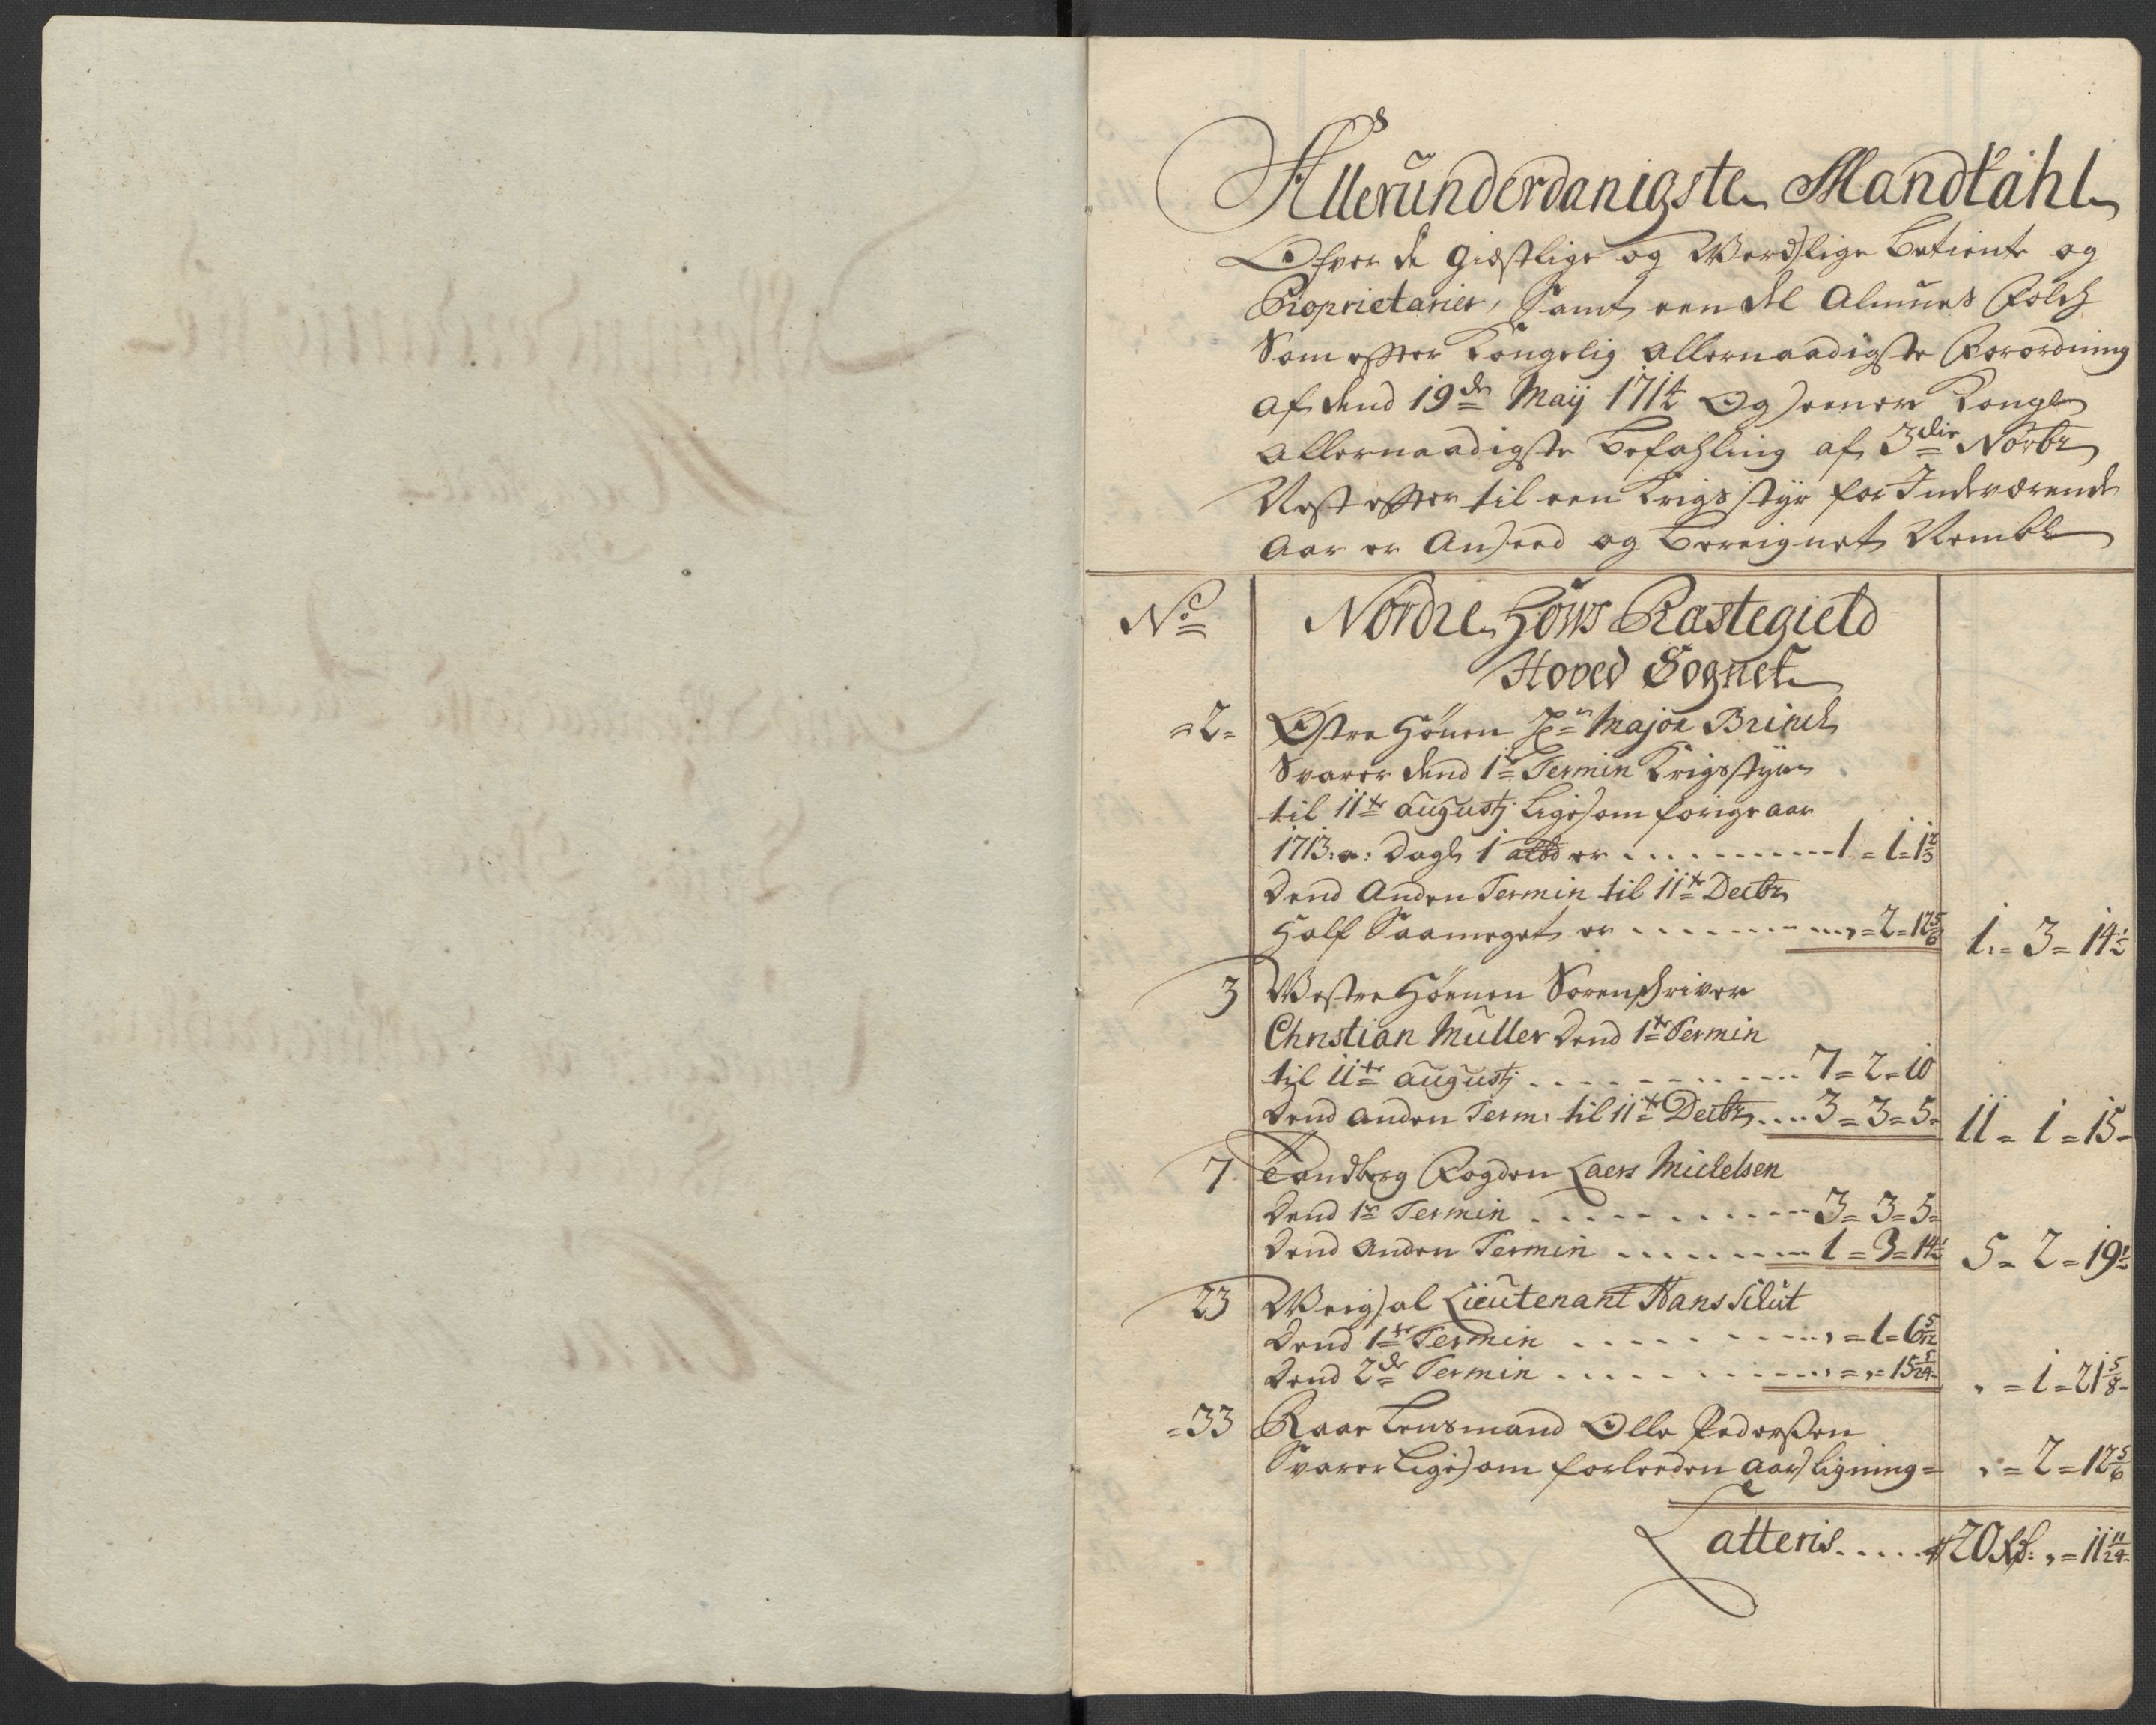 Allerunderdanigste Mandtahl
Ofver de Giestlige og Werdslige betiente og
Proprietarier, Samt een del Almues Folch
Som effter Kongelig allernaadigste Forordning
af dend 19de Maij 1714 Og seenere Kongl
allernaadigste befahling af 3die Novbr
Nest effter til een Krigs styr for Indeværende
Aar er Anseed og bereignet Nembl
No
Nordre Hougs Præstegield
Hoved Sognet
=2= Østre Hönen Major Brinch
Svarer dend 1te Termin Krigsstyr
til 11te augustj ligesom forige aar
1713: a: Dagl 1 er . . . . . . 1 = 1 = 1 2/3
Dend Anden Termin til 11te Decbr
Half Saameget er . . . . . . , = 2 = 12 5/6 1. = 3 = 14 1/2
3 Westre Hönnen Sorenschriver
Christian Muller Dend 1te Termin
til 11te augustj . . . . . . 7 = 2 = 10
Dend anden Term: til 11te Decbr .... 3 = 3 = 5 = 11 = 1 = 15 =
7 Tandberg Fogden Laers Michelsen
Dend 1te Termin . . . . . . 3 = 3 = 5 =
Dend anden Termin . . . . . . 1 = 3 = 14 1/2 5 = 2 = 19 1/2
23 Weigsal Lieutenant Hans Schut
Dend 1te Termin . . . . . . , = 1 = 6 5/12
Dend 2de Termin . . . . . . , = , = 15 5/24 , = 1 = 21 5/8 =
=33 Raae Lensmand Olle Pederßen
Svarer ligesom forleeden aars ligning = , = 2 = 12 5/6
Latteris ..... 20 Rd: , = 11 11/24